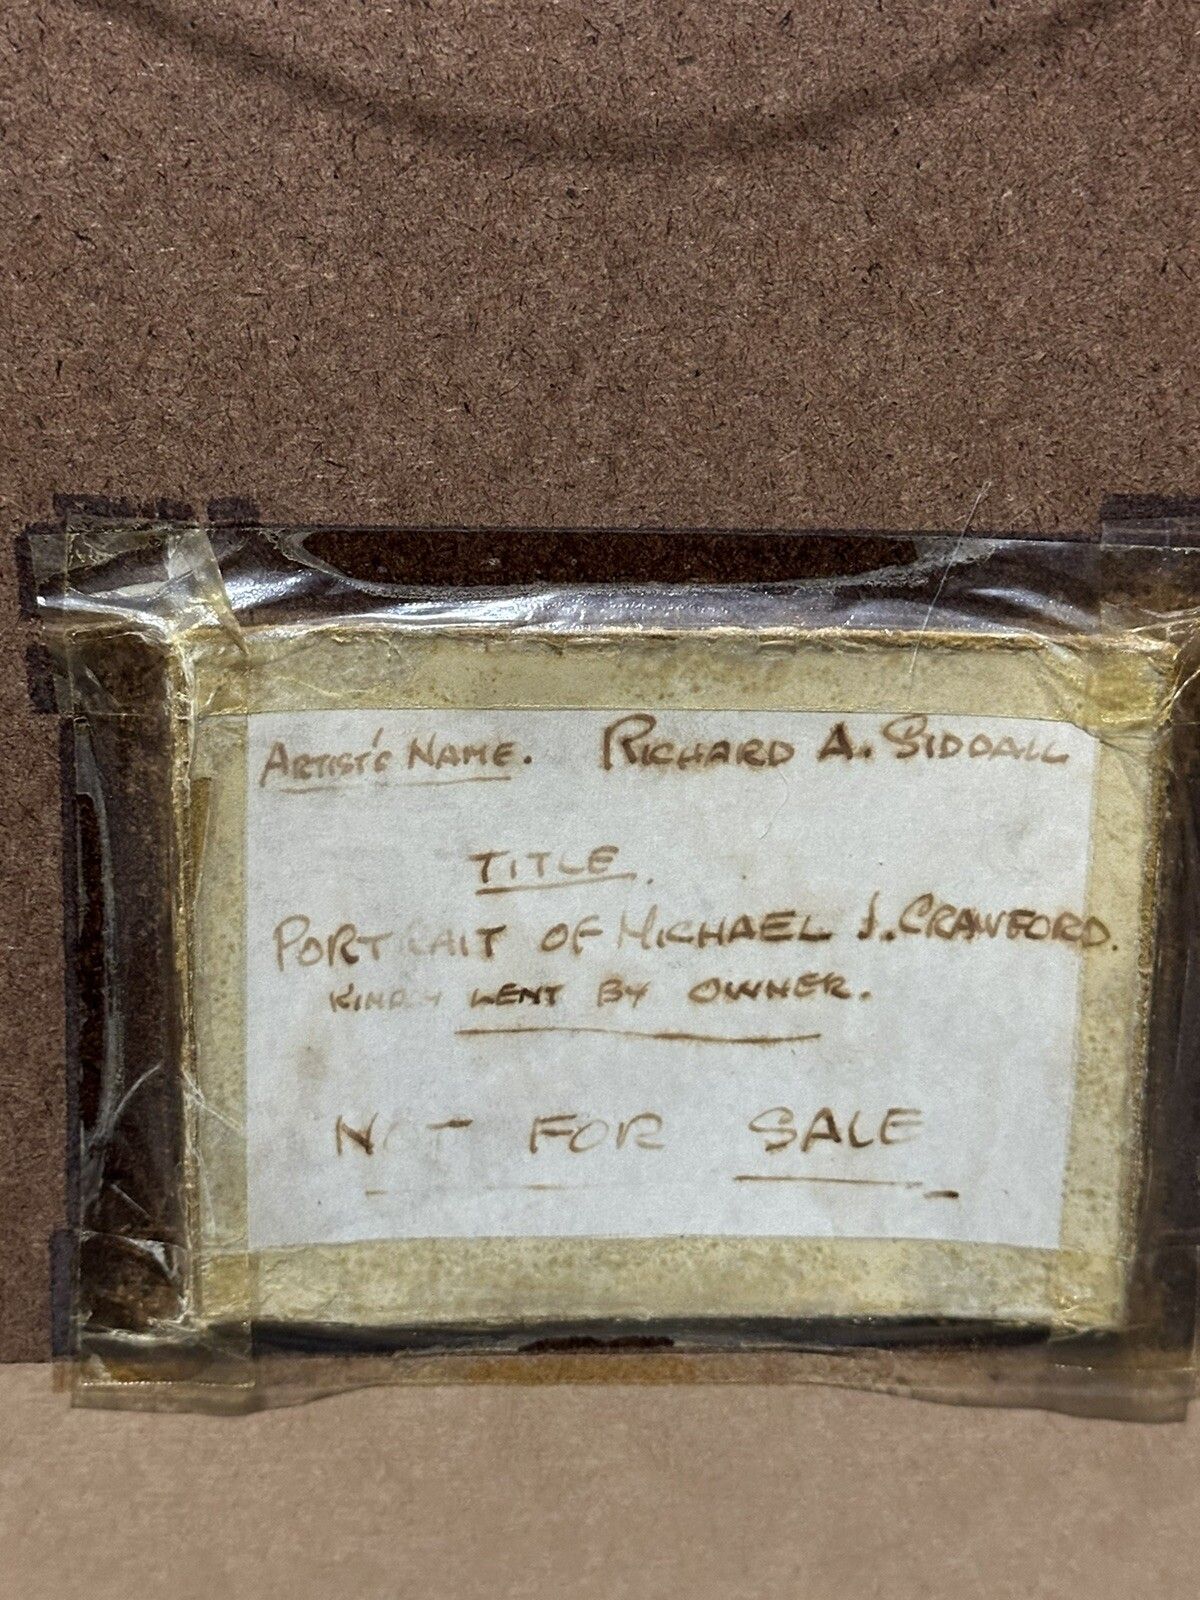 Artist's Name. Richard A. Siddall
TITLE.
Portrait of Michael J. Crawford.
Kindly lent by owner.
NOT FOR SALE